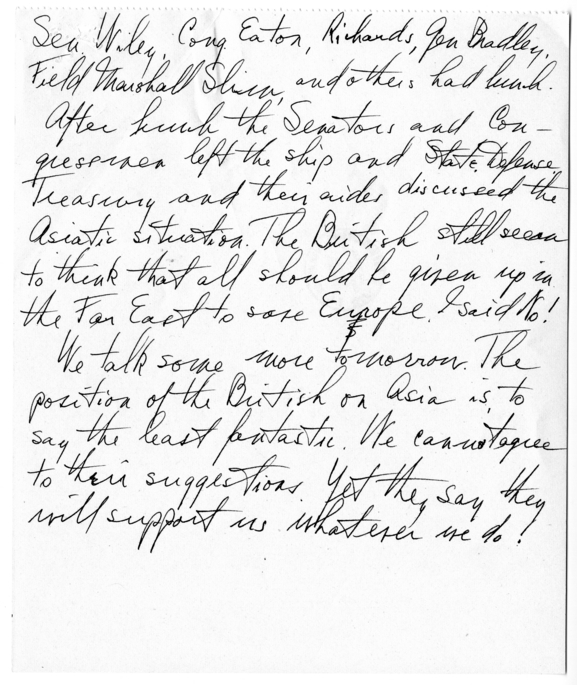 Sen. Wiley, Cong Eaton, Richards, Gen Bradley,
Field Marshall Slim, and others had lunch.
After lunch the Senators and Con-
gressmen left the ship and State, Defense
Treasury and their aides discussed the
Asiatic situation. The British still seem
to think that all should be given up in
the Far East to save Europe. I said No!
We talk some more tomorrow. The
position of the British on Asia is, to
say the least fantastic. We cannot agree
to their suggestions. Yet they say they
will support us whatever we do!